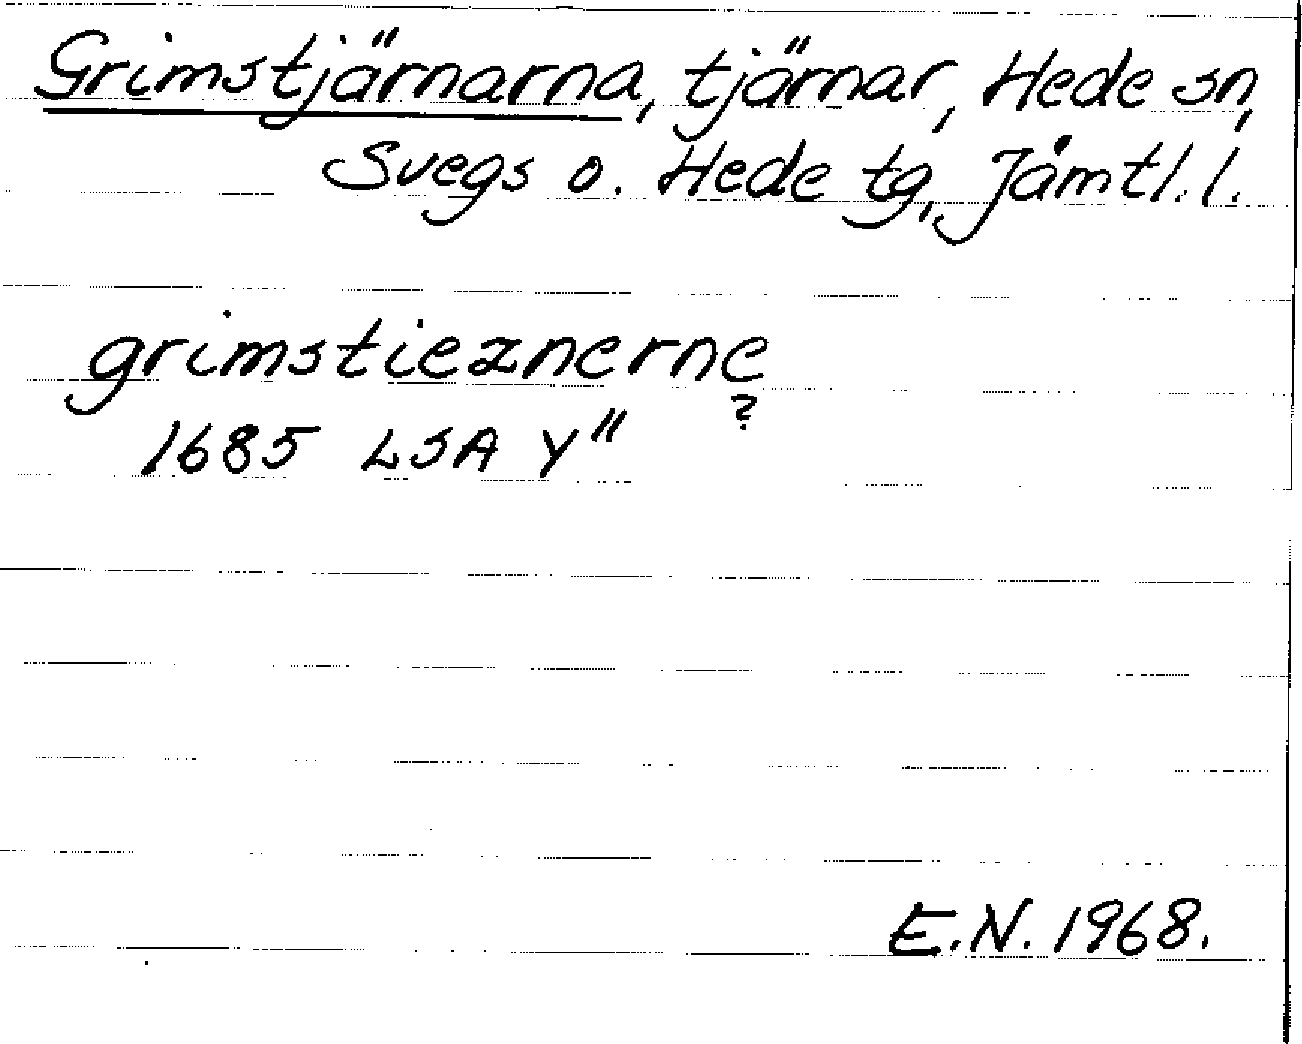 Grimstjärnarna, tjärnar, Hede sn,
Svegs o. Hede tg, Jämtl. l.
grimstieznerne
?
1685 LSA Y"
E.N. 1968.